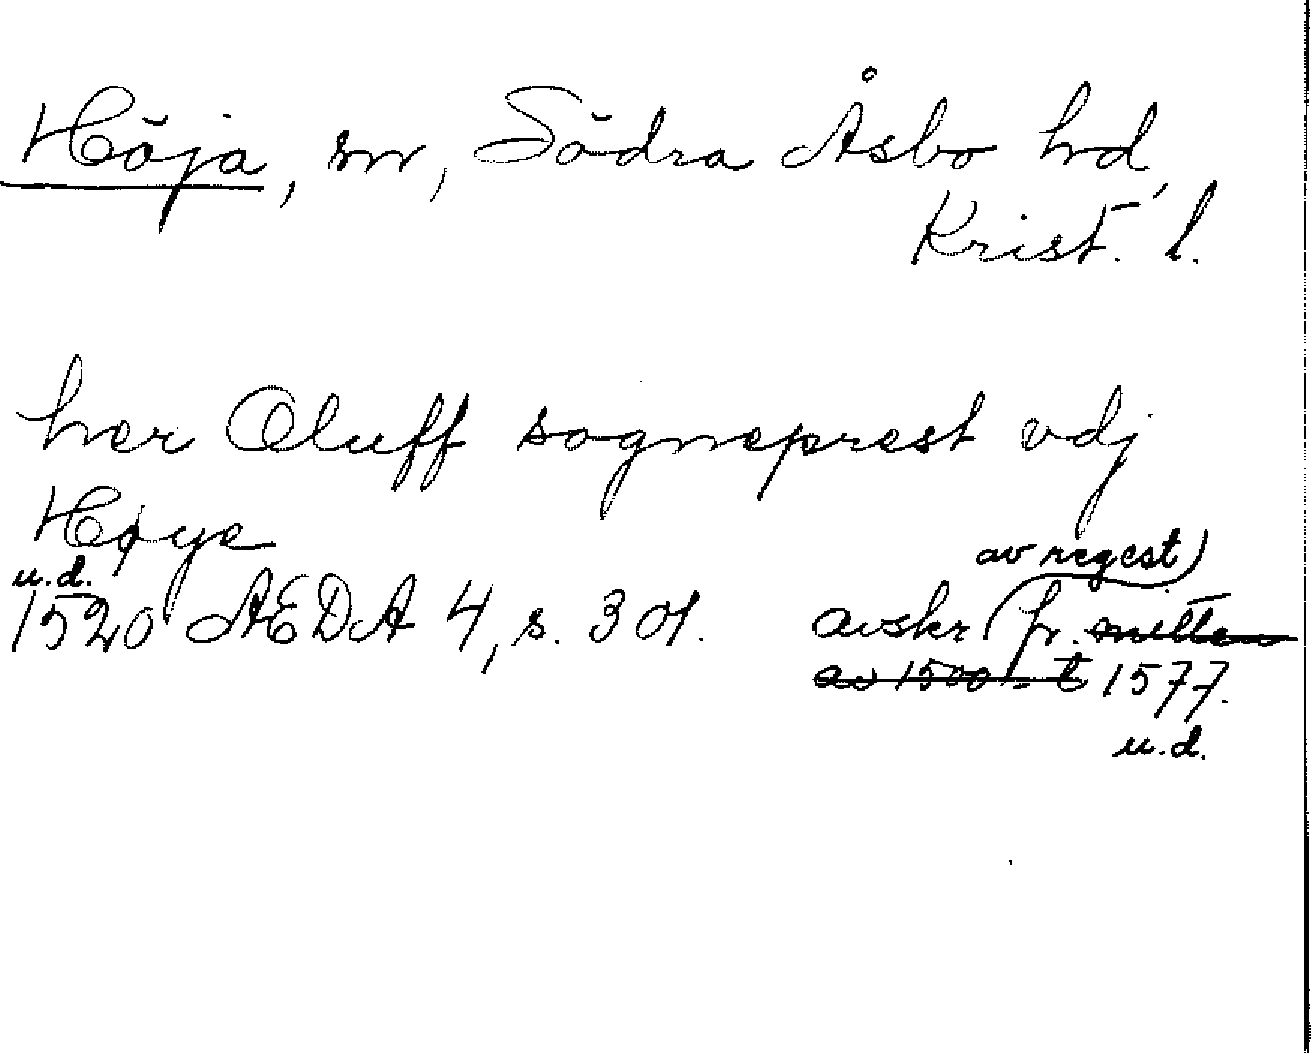 Höja, sn, Södra Åsbo hd,
Krist. l.
her Oluff sogneprest vdj
Høye
u.d.
1520 AEDA 4, s. 301.
av regest
avskr fr. mitten
av 1500-t 1577.
u.d.